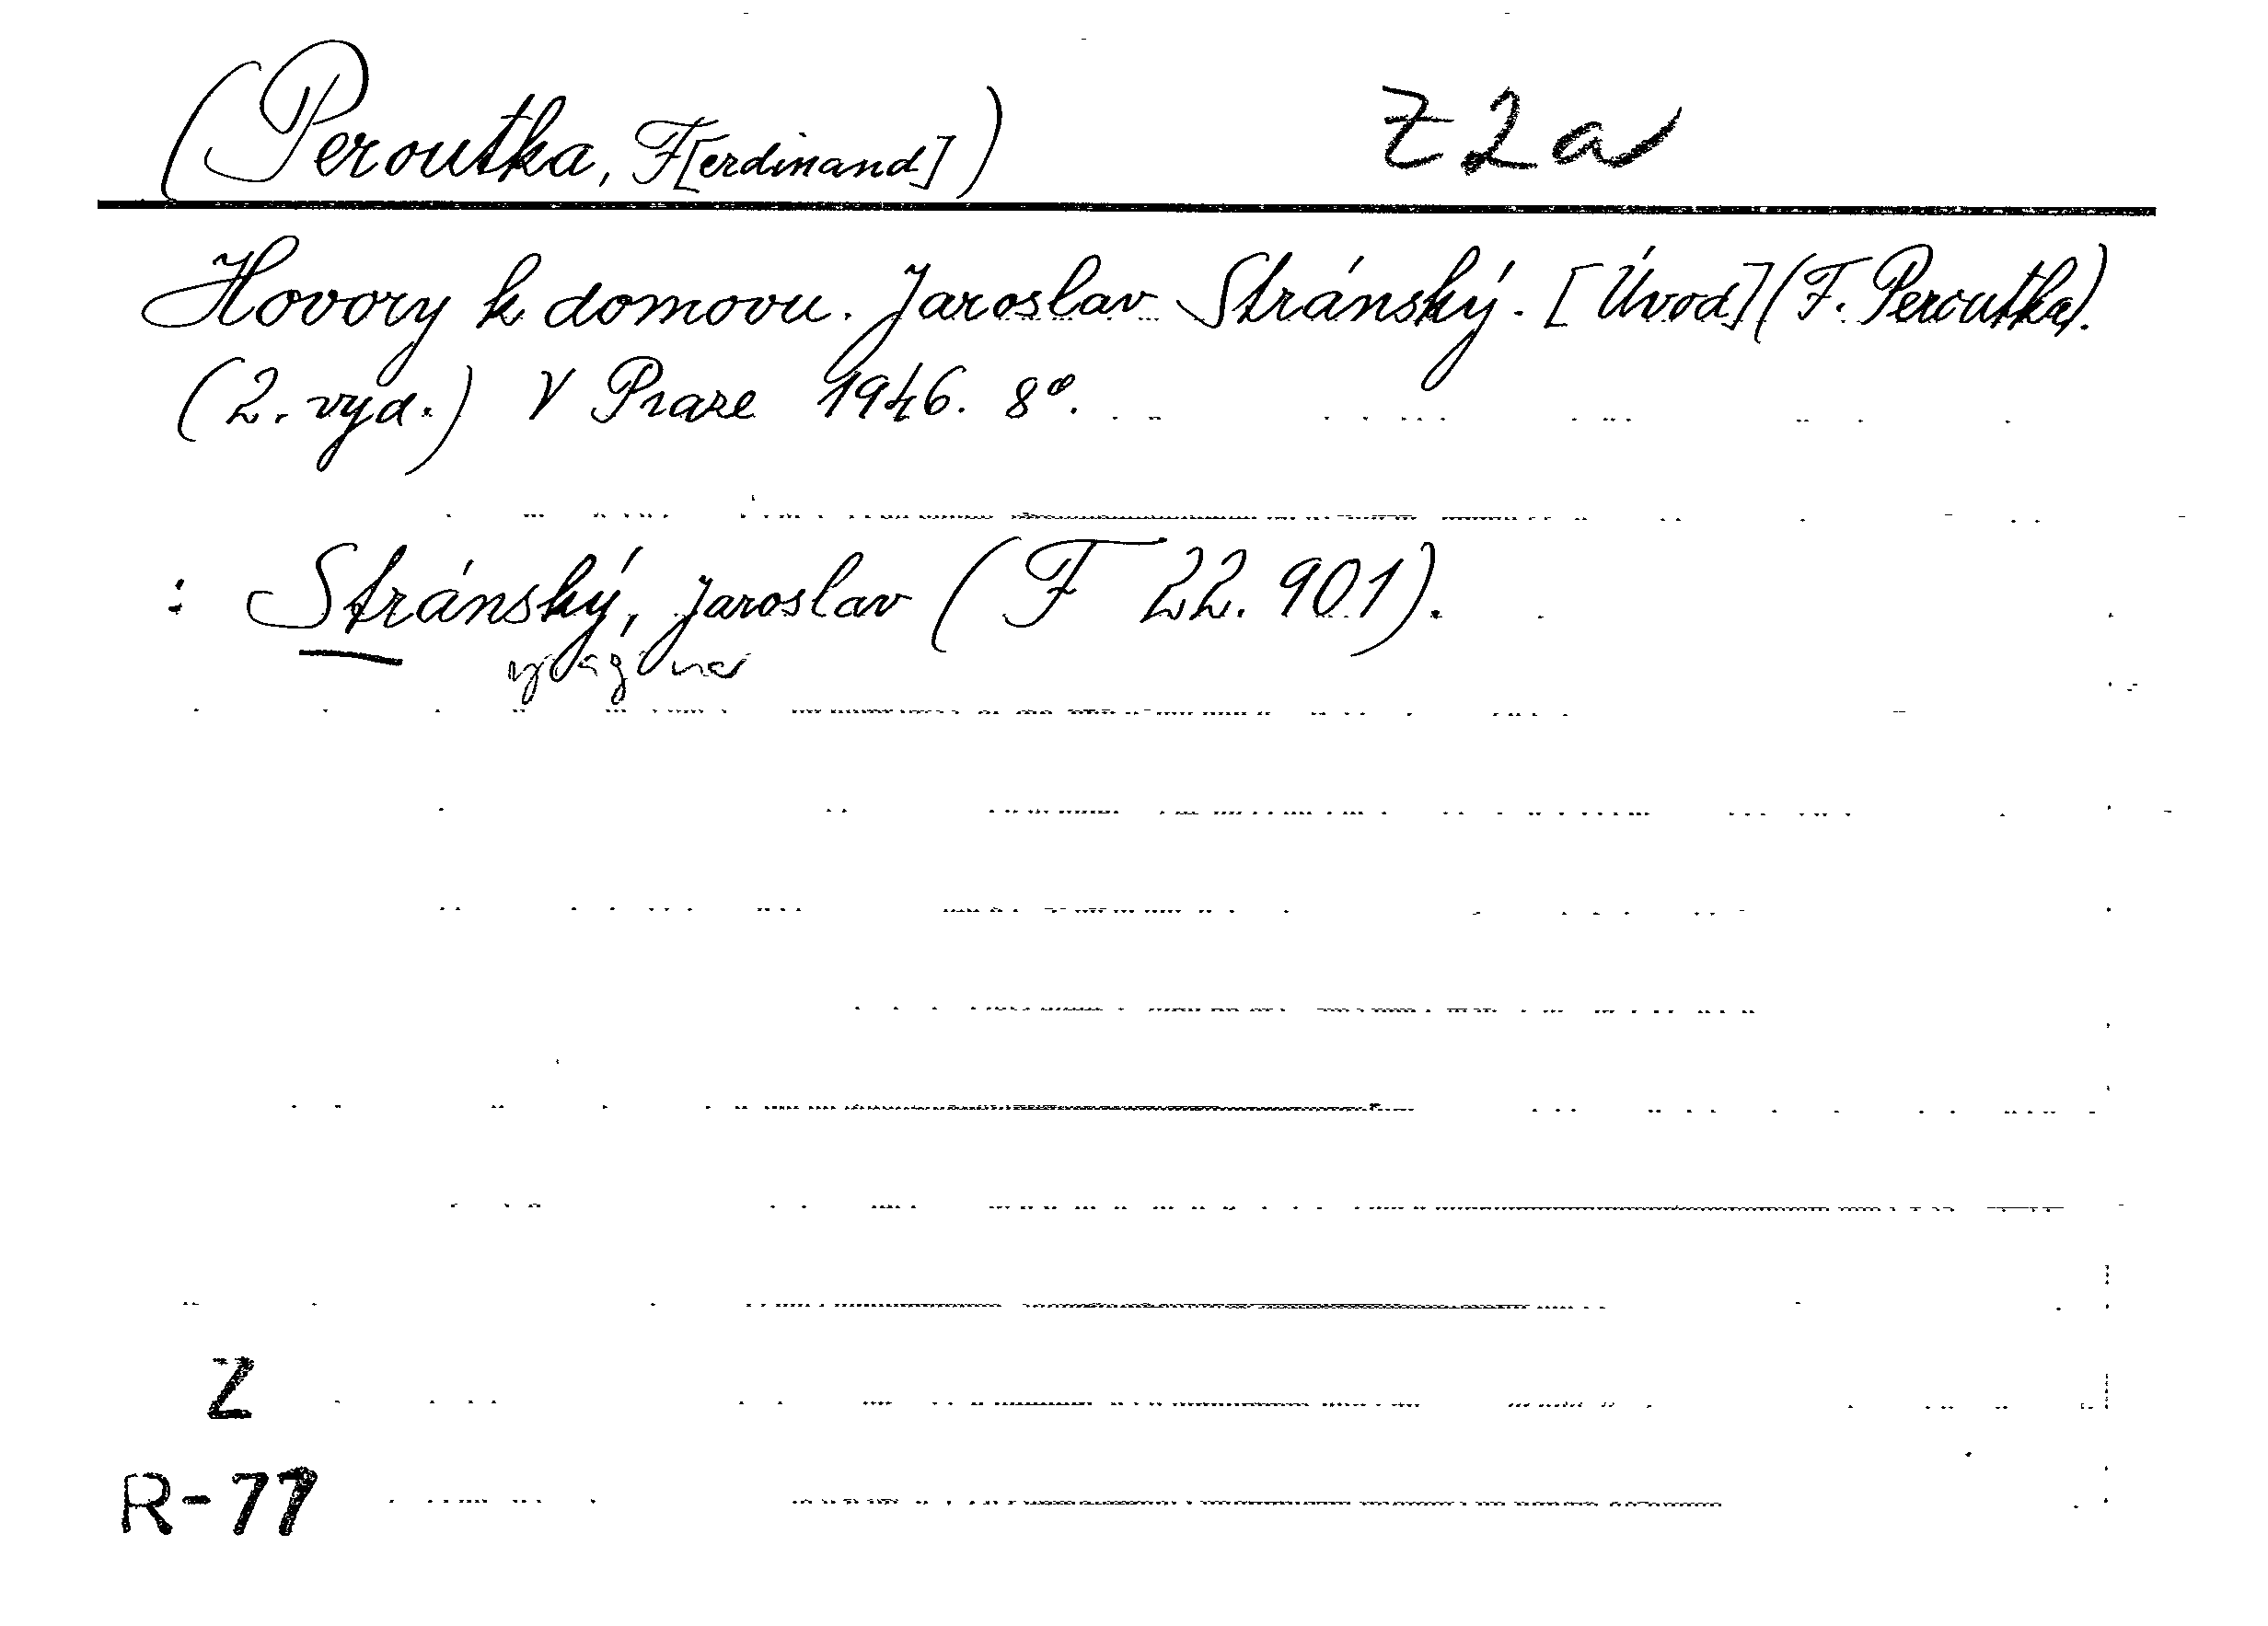 (Peroutka, F[erdinand]) Z2a
Hovory k domovu. Jaroslav Stránský. [Úvod] (F. Peroutka).
(2. vyd.) V Praze 1946. 8°.
: Stránský, Jaroslav (F 22.901).
Z
R-77